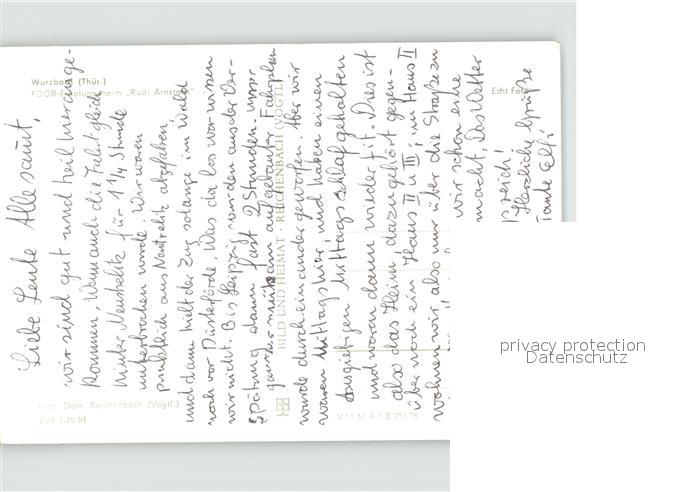 Wurzbach (Thür.)
FDGB-Erholungsheim „Rudi Arnstadt"
Echt Foto
Liebe Leute Alle samt,
wir sind gut und heil herange-
kommen, wenn auch die Fahrt gleich
hinter Neustrelitz für 1 1/4 Stunde
unterbrochen wurde. Wir waren
pünktlich aus Neustrelitz abgefahren
und dann hielt der Zug solange im Wald
noch vor Düsterförde. Was da los war wissen
wir nicht. Bis Leipzig wurden aus der Ver-
spätung dann fast 2 Stunden unser
ganzer mühsam aufgebauter Fahrplan
wurde durcheinander geworfen. Aber wir
waren Mittags hier und haben einen
ausgiebigen Mittagsschlaf gehalten
und waren dann wieder fit. Dies ist
also das Heim, dazu gehört gegen-
über noch ein Haus II u III, im Haus II
wohnen wir, also nur über die Straße zu
wir schon eine
macht. Das Wetter
Herzliche Grüße
Tante Elfi
BILD UND HEIMAT · REICHENBACH (VOGTL)
Foto: Darr, Reichenbach (Vogtl.)
EVP 0,25 M
V 11 50 A 1/B 351/75
privacy protection
Datenschutz